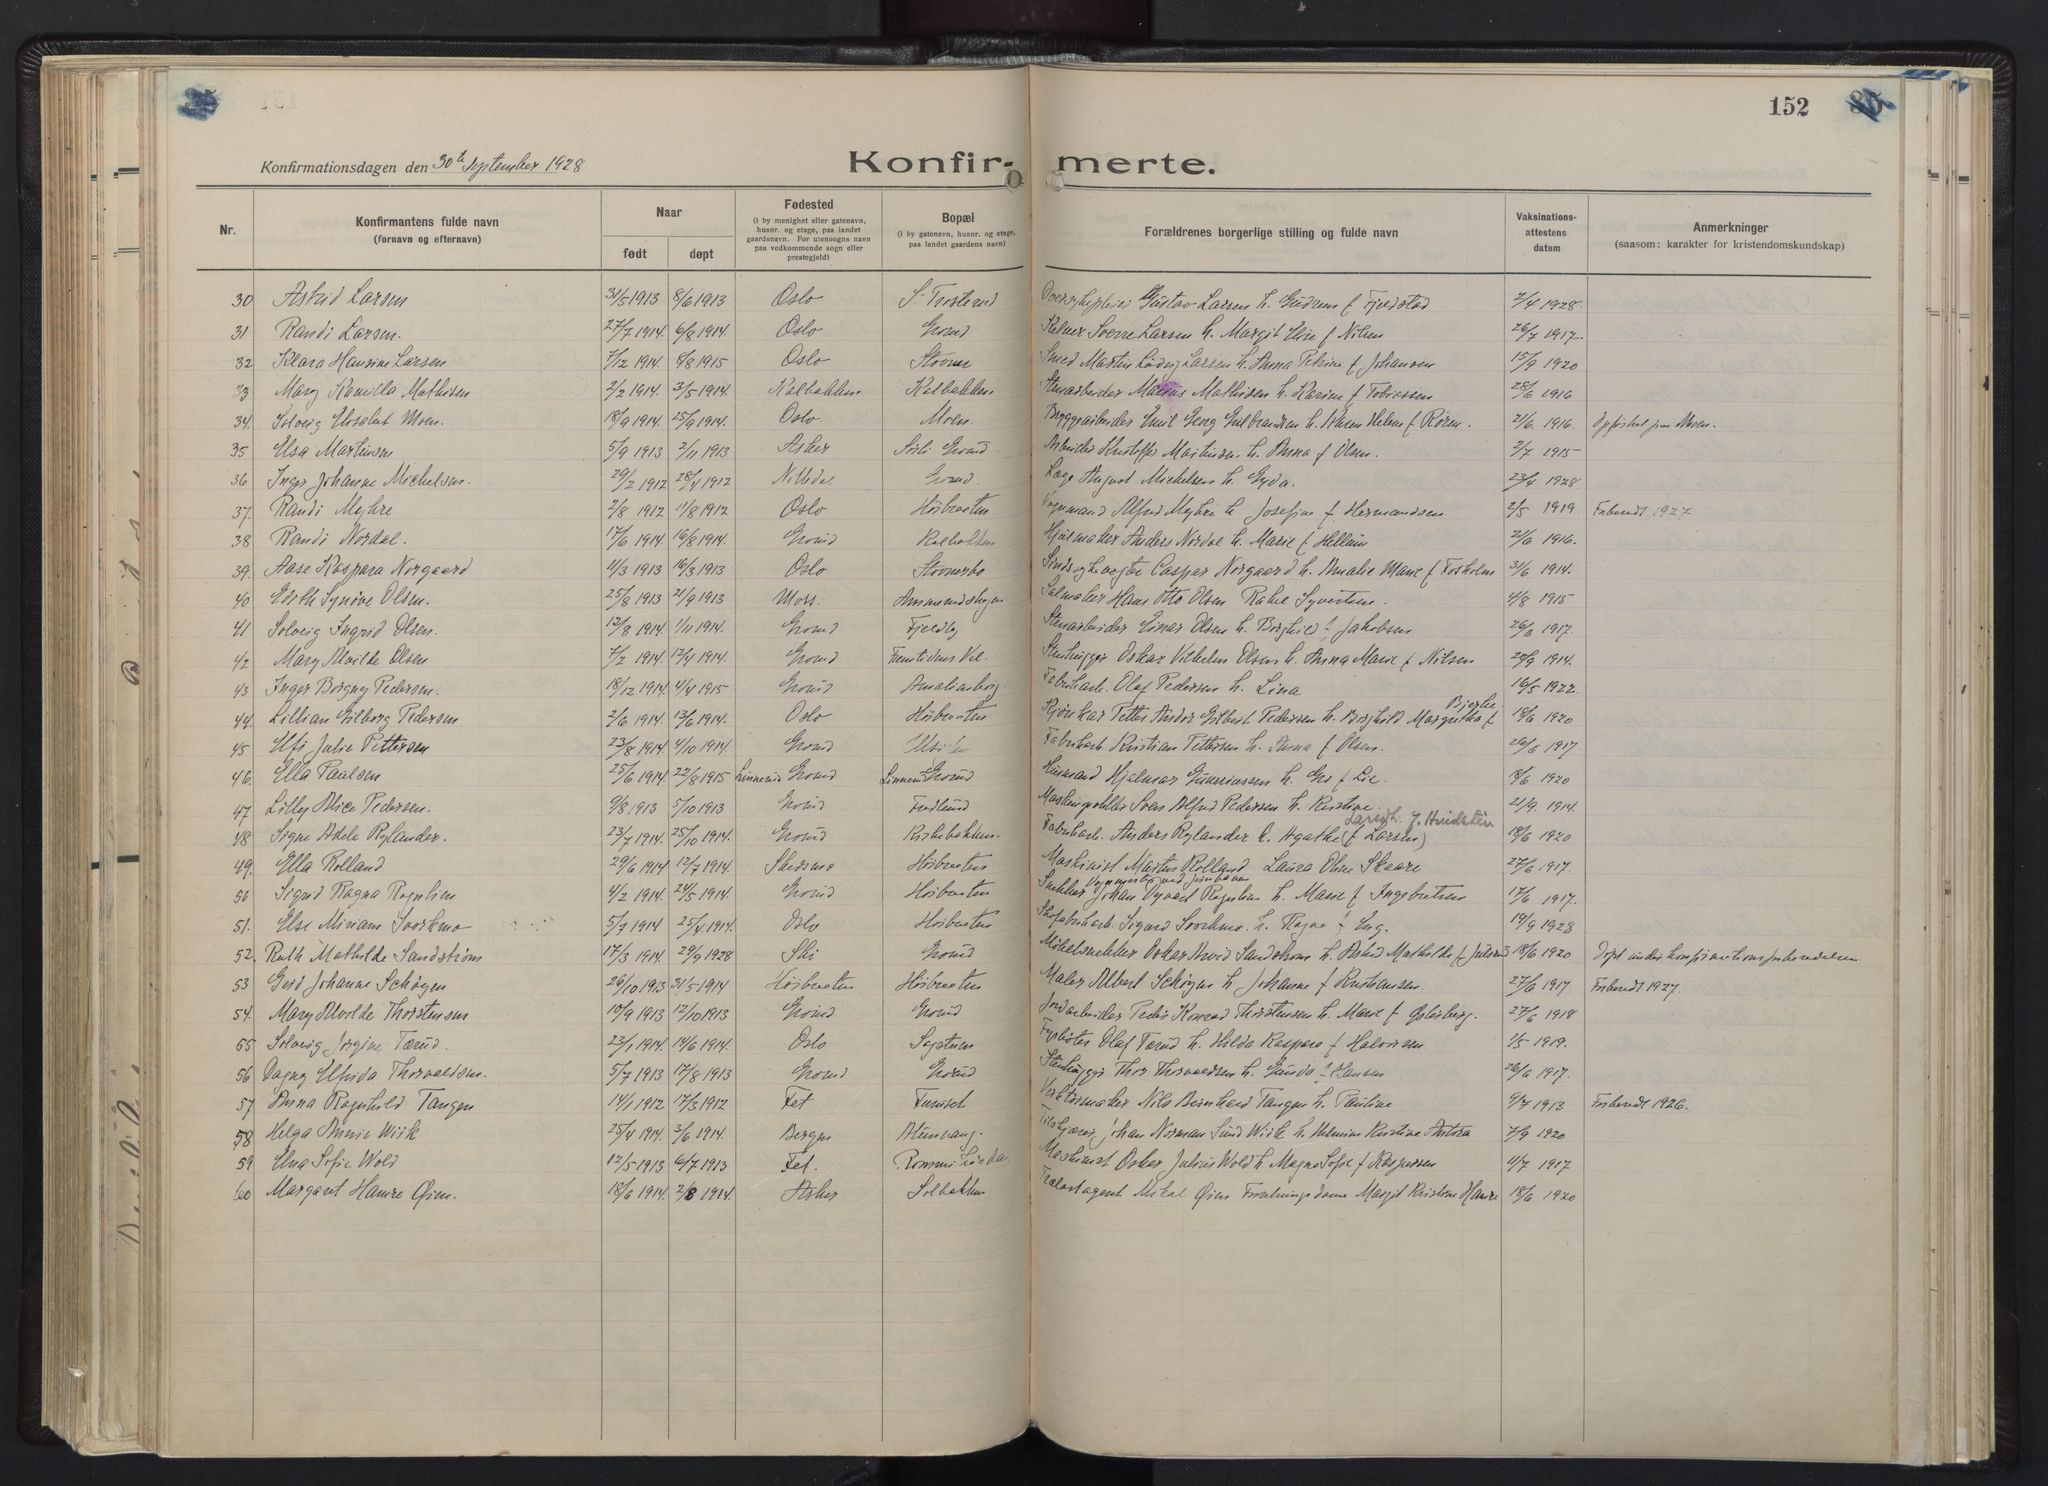 152
Konfirmationsdagen den 30te September 1928
Konfir- merte.
Nr.
Konfirmantens fulde navn
(fornavn og efternavn)
Naar
født
døpt
Fødested
(i by menighet eller gatenavn,
husnr. og etage, paa landet
gaardsnavn. For utensogns navn
paa vedkommende sogn eller
prestegjeld)
Bopæl
(i by gatenavn, husnr. og etage,
paa landet gaardens navn)
Forældrenes borgerlige stilling og fulde navn
Vaksinations-
attestens
datum
Anmerkninger
(saasom: karakter for kristendomskundskap)
30 Astrid Larsen 31/5 1913 8/6 1913 Oslo Gustav Larsen h. Gudrun f Fjeldstad 2/4 1928.
31 Randi Larsen. 27/7 1914. 6/8 1914. Oslo Grorud Kelner Sverre Larsen h. Margit Elise f Nilsen 26/7 1917.
32 Klara Hansine Larsen 7/12 1914. 8/8 1915 Oslo Stovner Smed Martin Ludvig Larsen h. Anna Petrine f Johansen 15/9 1920
33 Mary Kamilla Mathisen 2/2 1914. 3/5 1914. Kalbakken Kalbakken Stenarbeider Marius Mathisen h. Karine f Tobiassen 28/6 1916
34. Solveig Elisabet Moen. 18/9 1914. 25/9 1914. Oslo Moen. Emil Georg Gulbrandsen h. Helene f Rören. 21/6 1916. Moen.
35 Elsa Martinsen 5/9 1913 2/11 1913 Asker Grorud Arbeider Kristoffer Martinsen h. Anna f Olsen. 2/7 1915
36 Inger Johanne Michelsen. 29/2 1912 28/4 1912 Nittedal Grorud. Læge August Michelsen h. Gyda. 23/4 1928
37. Randi Myhre 2/8 1912 11/8 1912 Oslo Höibraaten Vognmand Alfred Myhre h. Josefine f. Hermandsen 2/5 1919. Forberedt 1927
38 Randi Nordal. 17/6 1914 16/8 1914. Grorud Kalbakken Hjulmaker Anders Nordal h. Marie f Hellum 21/6 1916.
39. Aase Kaspara Norgaard 11/3 1913 16/3 1913 Oslo Stovnerbo Casper Norgaard h. Amalie Marie f Fosholm 31/6 1914.
40 Edith Synöve Olsen. 25/8 1913 21/9 1913 Moss. Ammerudskogen Salmaker Hans Otto Olsen Rakel Syvertsen. 4/8 1915
41 Solveig Ingrid Olsen. 12/8 1914 1/11 1914. Grorud Fjeldby Stenarbeider Einar Olsen h. Borghild f Jakobsen 26/6 1917.
42 Mary Alvilde Olsen 7/2 1914. 12/4 1914. Grorud Fremtidens Vel. Stenhugger Oskar Vilhelm Olsen h. Anna Marie f Nilsen 28/9 1914.
43 Inger Borgny Pedersen. 18/12 1914 4/4 1915 Grorud Amalienborg Fabrikarb. Olaf Pedersen h. Lina 16/5 1922.
44. Lillian Gilborg Pedersen 2/6 1914. 13/6 1914. Oslo Höibraaten Petter Andor Gilbert Pedersen h. Borghild Margretha f Bjerke 18/6 1920
45 Elfi Julie Pettersen 23/8 1914 4/10 1914. Grorud Fabrikarb. Kristian Pettersen h. Anna f Olsen. 26/6 1917
46. Ella Paulsen 25/6 1914 22/8 1915 Linnerud Grorud Linnerud Grorud Husmand Hjalmar h. f Lie. 18/6 1920
47 Lilly Alice Pedersen. 9/8 1913 5/10 1913 Grorud Fredlund Sven Alfred Pedersen h. Kristine. 21/9 1914.
48 Signe Adele Rylander. 23/7 1914. 25/10 1914. Grorud Kirkebakken. Fabrikarb. Anders Rylander h. Agathe (f Larsen) f. Hvidsten 18/6 1920
49. Ella Rolland 29/6 1914 12/7 1914. Skedsmo Höibraaten Maskinist Martin Rolland Laura Oline Skaare 27/6 1917.
50 Sigrid Ragna Rognlien 4/2 1914. 24/5 1914. Grorud Höibraaten Snekker Johan Rognlien h. Marie f Ingebretsen 17/6 1917.
51. Else Miriam Svorkmo 5/7 1914 25/4 1914. Oslo Höibraaten Skofabrikarb. Sigurd Svorkmo. h. Ragna f Eng. 19/9 1928
52. Ruth Mathilde Sandström 17/3 1914. 29/9 1928 Ski Grorud Möbelsnekker Oskar Arvid Sandström h. Astrid Mathilde f Julsrud 18/6 1920 Döpt under konfirmationsforberedelsen
53 Gerd Johanne Schøgen 26/10 1913 31/5 1914 Höibraaten Höibraaten Maler Albert Schøgen h Johanne f Kristiansen 27/6 1917. Forberedt 1927.
54. Mary Alvilde Thorstensen 10/9 1913 12/10 1913 Grorud Grorud Jordarbeider Peder Konrad Thorstensen h. Marie f Østerberg. 27/6 1918
55 Solveig Jørgine Tærud. 23/1 1914. 14/6 1914. Oslo Fyrbøter Olaf Tærud h. Hilda Kaspara f Halvorsen 2/5 1919.
56 Dagny Elfrida Thorvaldsen. 5/7 1913 17/8 1913 Grorud Grorud Stenhugger Thor Thorvaldsen h. Gunda f Hansen 26/6 1917.
57 Anna Ragnhild Tangen 14/1 1912 17/3 1912 Fet Furuset Verktøismaker Nils Bernhard Tangen h. Pauline 9/7 1913 Forberedt 1926.
58 Helga Annie Wiik 25/4 1914. 3/6 1914. Bergen Johan Norman Sund Wiik h. Kristine 7/9 1920
59 Elna Sofie Wold 12/5 1913 6/7 1913 Fet. Maskinist Oskar Julius Wold h. Magna Sofie f Kaspersen 4/7 1917
60 Margaret Hamre Øien. 18/6 1914. 2/8 1914. Asker Solbakken Mikal Øien Margit Kristine Hamre 18/6 1920